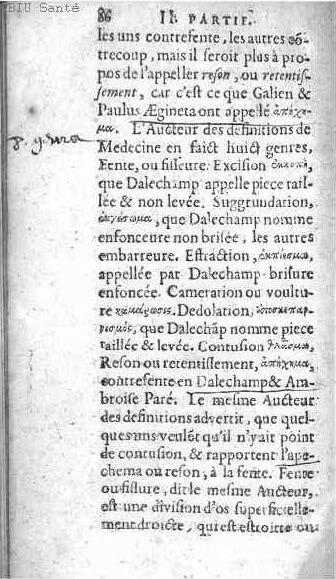 BIU Santé
86 II. PARTIE.
les uns contrefente, les autres cõ-
trecoup, mais il seroit plus à pro-
pos de l'appeller reson, ou retentis-
sement, car c'est ce que Galien &
Paulus Ægineta ont appellé ἀπήχη-
μα. L'Aucteur des definitions de
Medecine en faict huict genres,
Fente, ou fissure. Excision ἐκκοπὴ,
que Dalechamp appelle piece tail-
lée & non levée. Suggrundation,
ἐγγίσωμα, que Dalechamp nomme
enfonceure non brisée, les autres
embarreure. Effraction, ἐκπίεσμα,
appellée par Dalechamp brisure
enfoncée. Cameration ou voultu-
re καμάρωσις. Dedolation,
que Dalechãp nomme piece
taillée & levée. Contusion θλάσμα,
Reson ou retentissement, ἀπήχημα,
contrefente en Dalechamp & Am-
broise Paré. Le mesme Aucteur
des definitions advertit, que quel-
ques uns veulẽt qu'il n'y ait point
de contusion, & rapportent l'ape-
chema ou reson, à la fente. Fente
ou fissure, dit le mesme Aucteur,
est une division d'os superficielle-
ment droicte, qui est estroitte ou